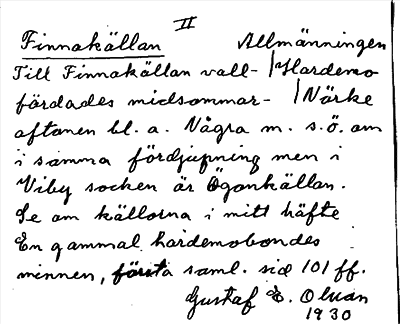 II
Finnakällan Allmänningen
Till Finnakällan vall- / Hardemo
färdades midsommar- / Närke
aftonen bl. a. Några m. s.ö. om
i samma fördjupning men i
Viby socken är Ögonkällan.
Se om källorna i mitt häfte
En gammal hardemobondes
minnen, första saml. sid 101 ff.
Gustaf E. Olsson
1930